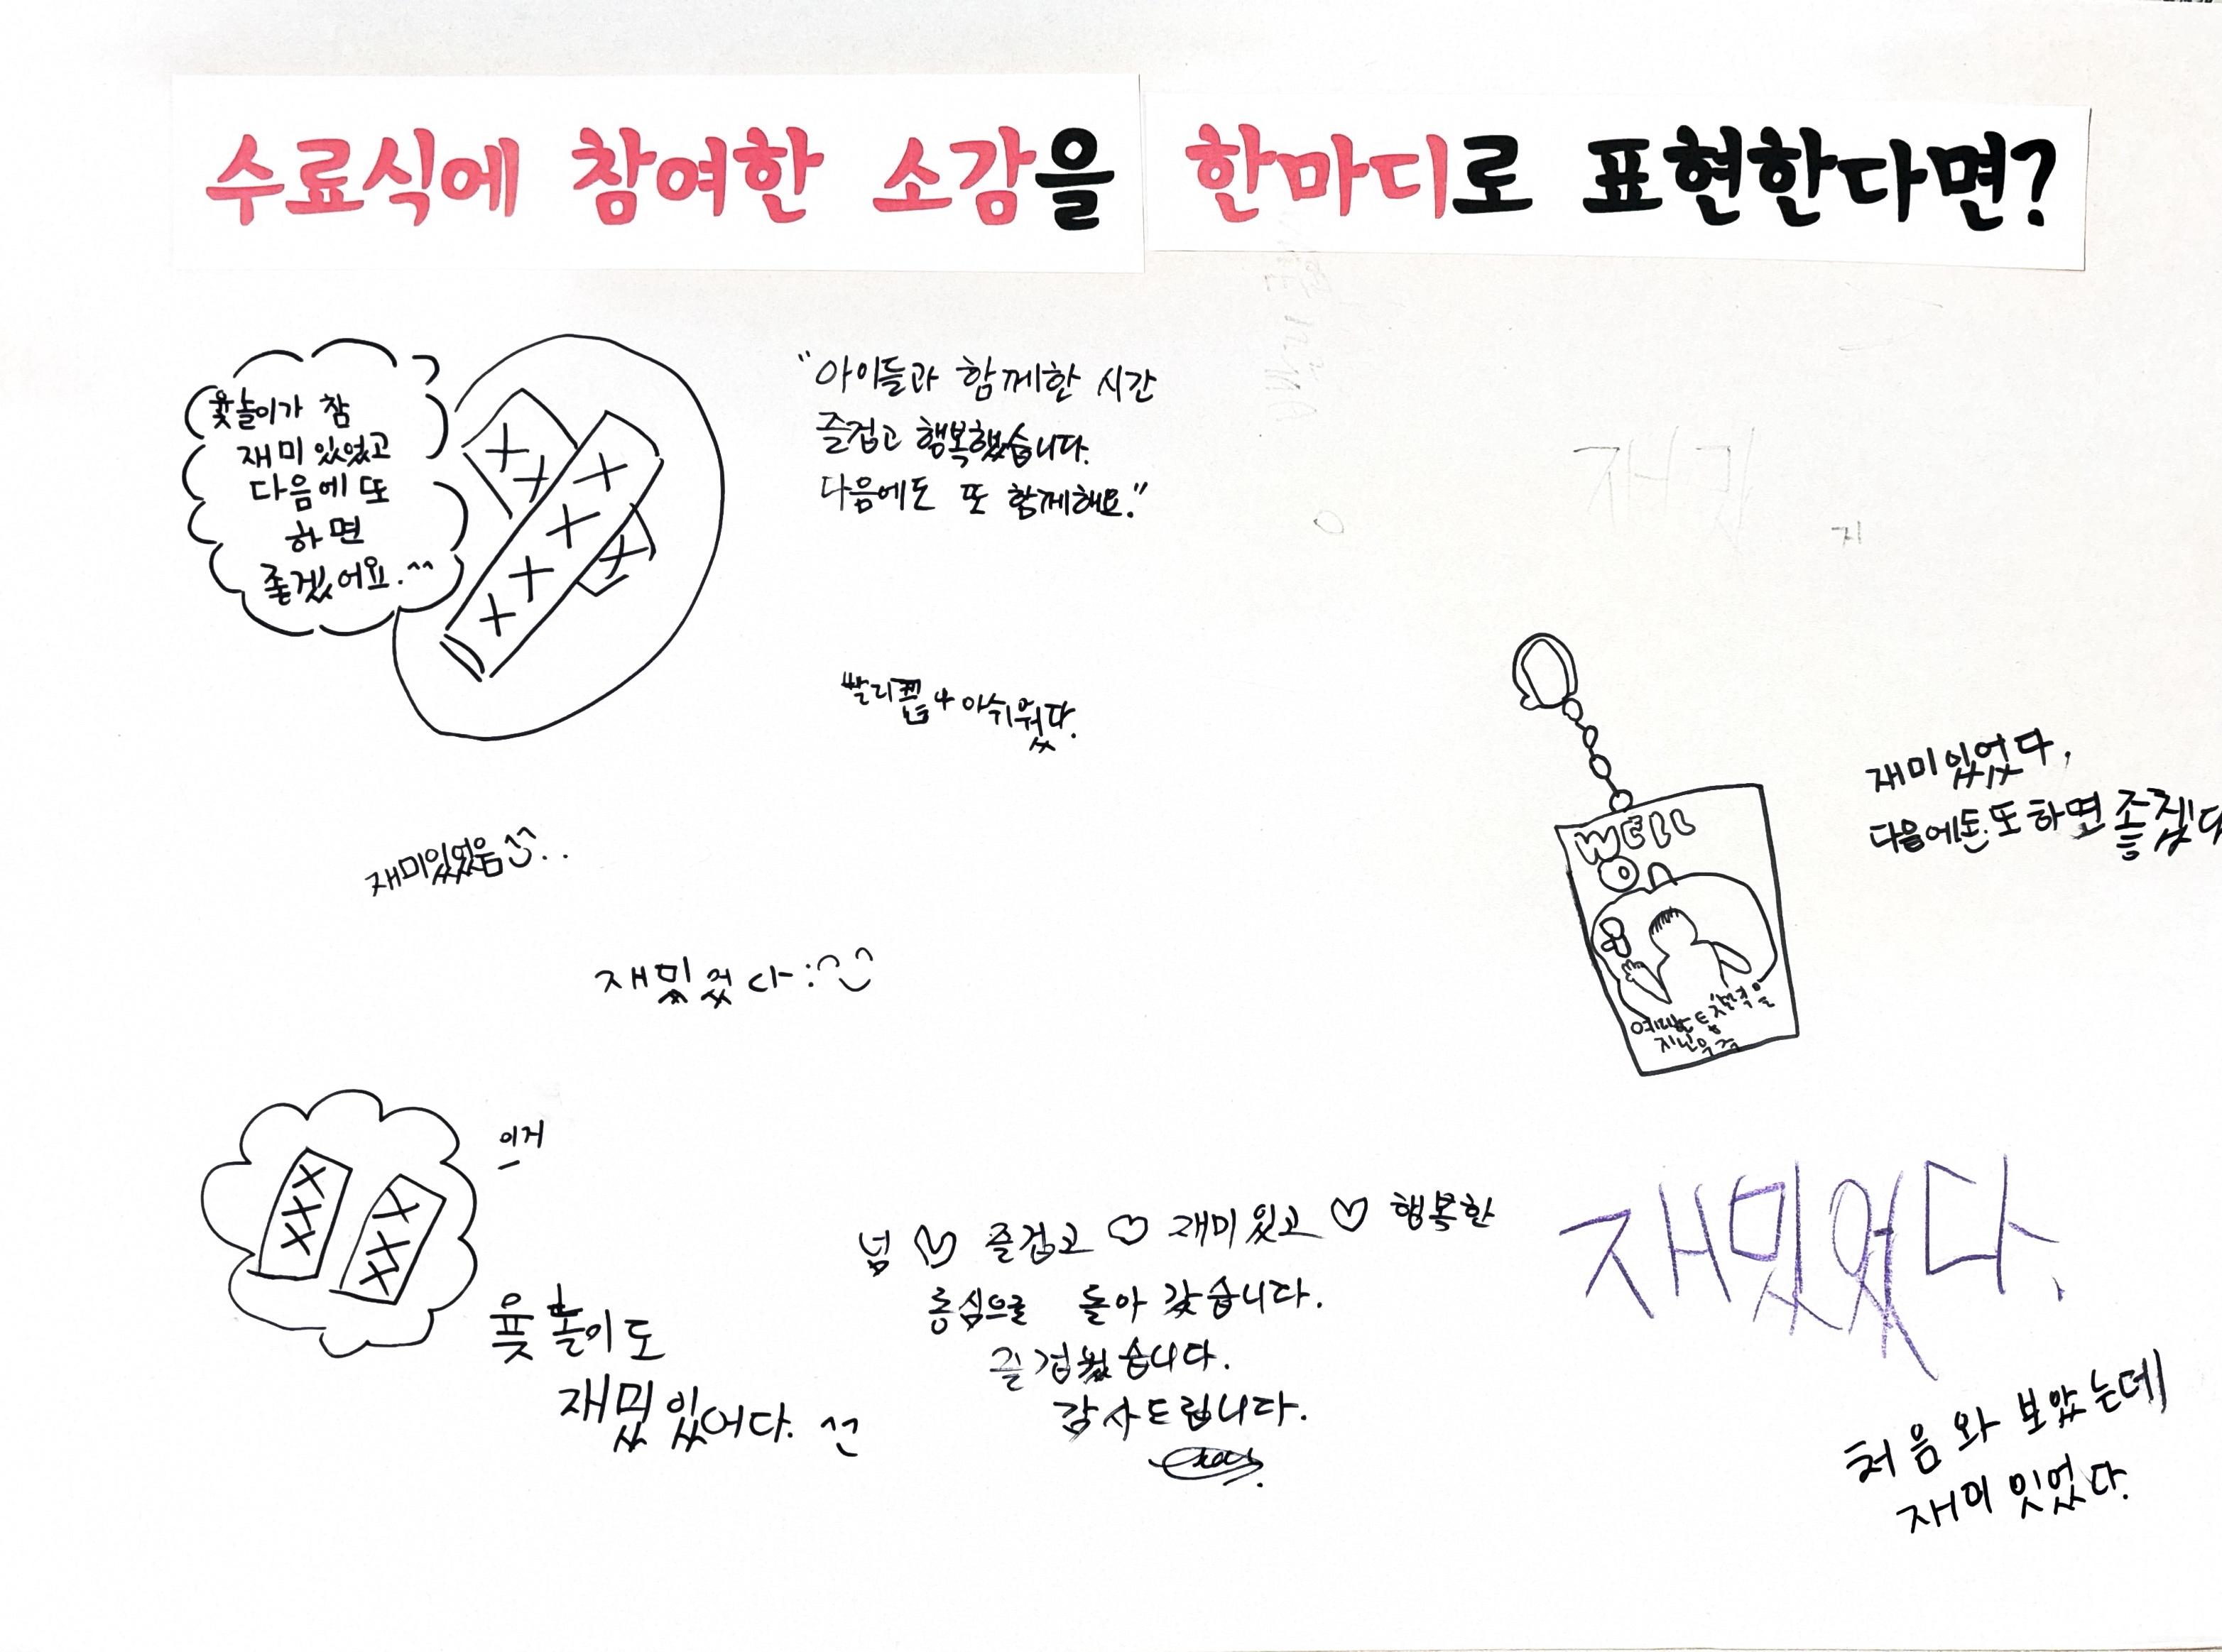 수료식에 참여한 소감을 한마디로 표현한다면?
윷놀이가 참
재미있었고
다음에 또
하면
좋겠어요.^^
"아이들과 함께한 시간
즐겁고 행복했습니다.
다음에도 또 함께해요."
재미
지
아쉬웠다.
WELL
On
지닌
재미있었다,
다음에도 또 하면
재미있었음
재밌었다:
이거
윷놀이도
재밌있어다.
넘 ♡ 즐겁고 ♡ 재미있고 ♡ 행복한
동심으로 돌아 갔습니다.
즐거웠습니다.
감사드립니다.
재밌었다.
처음 와 보았는데
재미 잇었다.